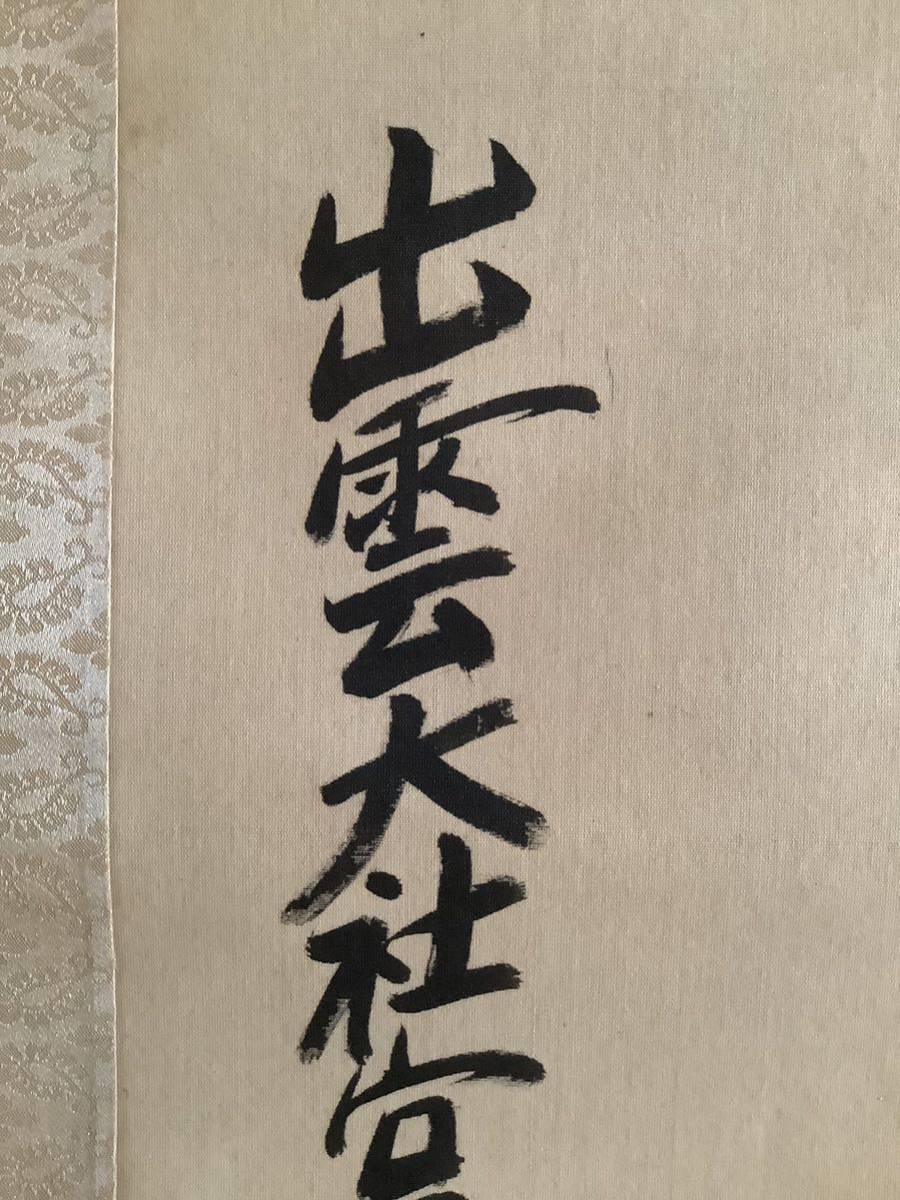 出雲大社宮